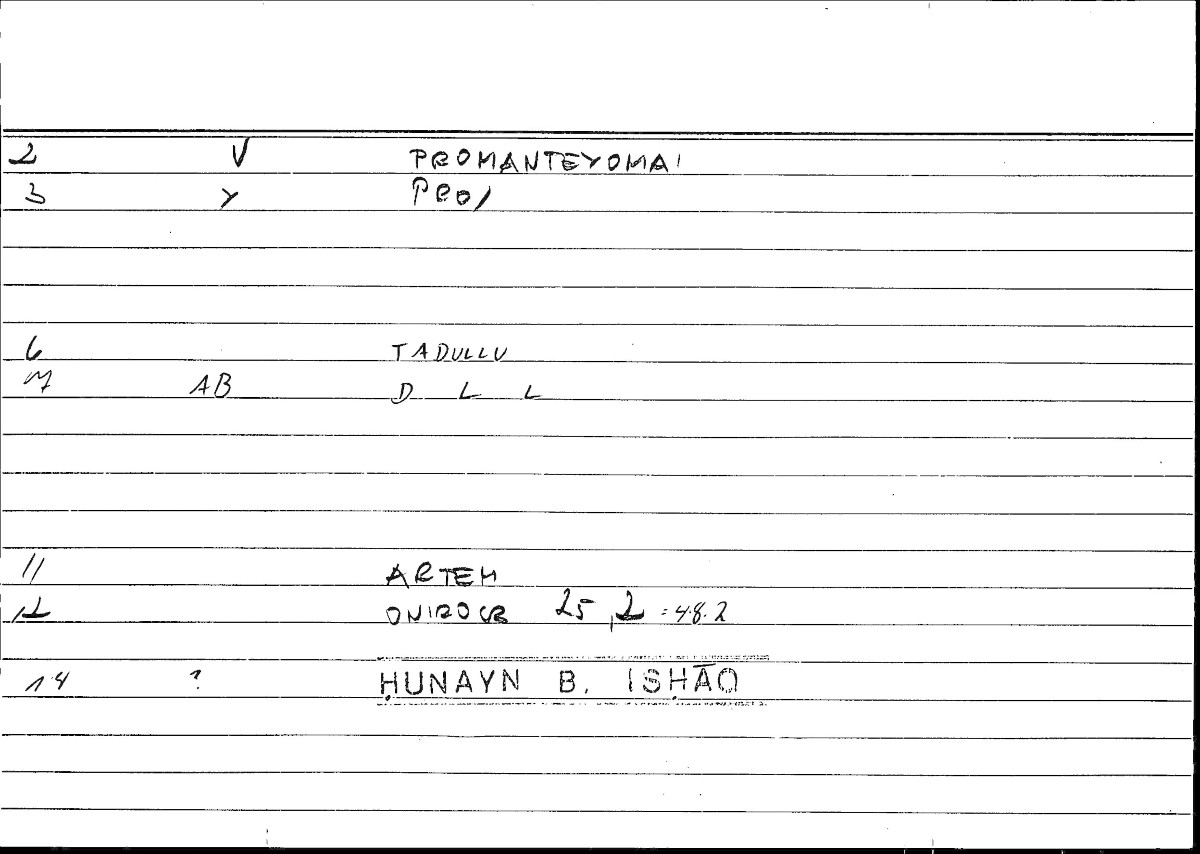 2 V PROMANTEYOMAI
3 Y PRO/
6 TADULLU
7 AB D L L
11 ARTEM
12 ONIROCR 25,2 = 48.2
14 ? ḤUNAYN B. ISḤĀQ